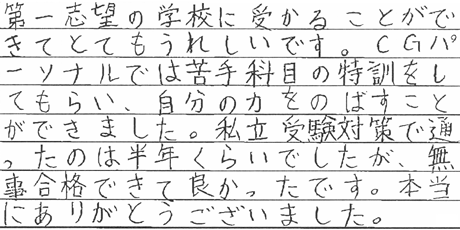 第一志望の学校に受かることがで
きてとてもうれしいです。CGパ
ーソナルでは苦手科目の特訓をし
てもらい、自分の力をのばすこと
ができました。私立受験対策で通
ったのは半年くらいでしたが、無
事合格できて良かったです。本当
にありがとうございました。